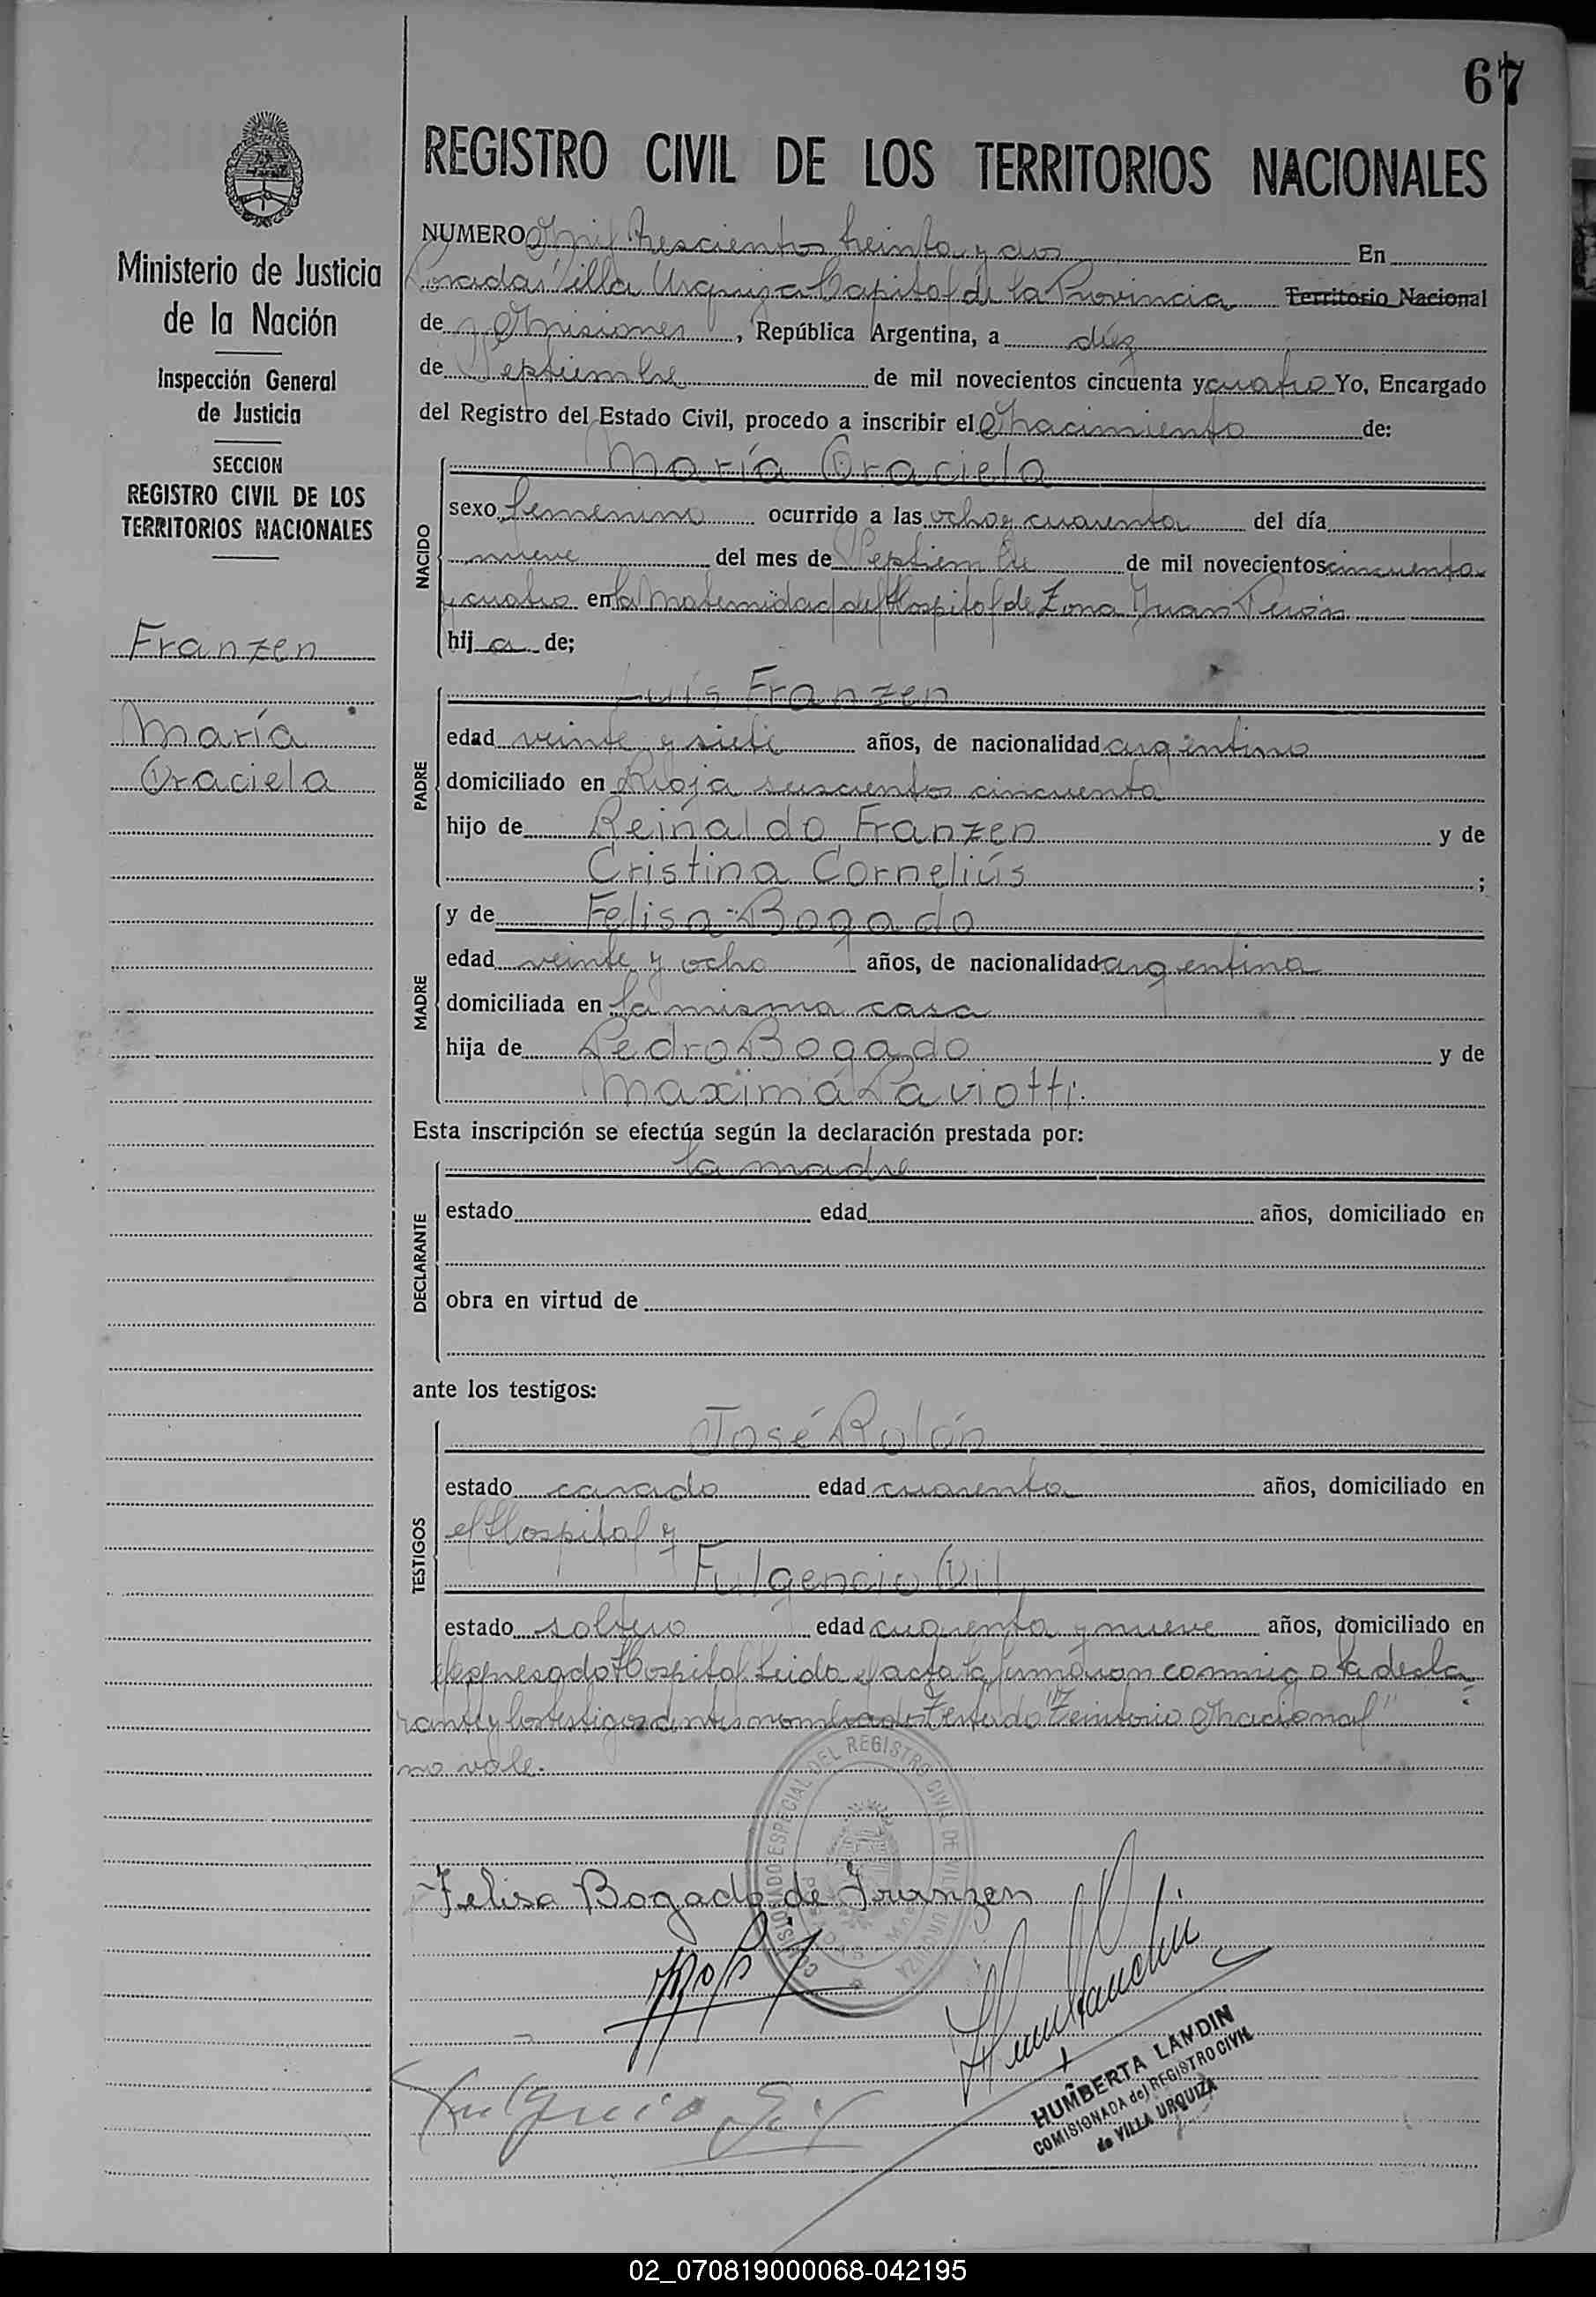 67
REGISTRO CIVIL DE LOS TERRITORIOS NACIONALES
Ministerio de Justicia
de la Nación
Inspección General
de Justicia
SECCION
REGISTRO CIVIL DE LOS
TERRITORIOS NACIONALES
Franzen
María
Graciela
NUMERO Mil trescientos treinta y dos En
Posadas Villa Urquiza Capital de la Provincia Territorio Nacional
de Misiones, República Argentina, a diez
de Septiembre de mil novecientos cincuenta y cuatro Yo, Encargado
del Registro del Estado Civil, procedo a inscribir el Nacimiento de:
NACIDO
María Graciela
sexo femenino ocurrido a las ocho y cuarenta del día
nueve del mes de Septiembre de mil novecientos cincuenta
y cuatro en la Maternidad del Hospital de Zona Juan Perón
hija de;
PADRE
Luis Franzen
edad veinte y siete años, de nacionalidad argentino
domiciliado en Rioja seiscientos cincuenta
hijo de Reinaldo Franzen y de
Cristina Corneliús;
MADRE
y de Felisa Bogado
edad veinte y ocho años, de nacionalidad argentina
domiciliada en la misma casa
hija de Pedro Bogado y de
Maxima Paviotti.
Esta inscripción se efectúa según la declaración prestada por:
DECLARANTE
la madre
estado edad años, domiciliado en
obra en virtud de
ante los testigos:
TESTIGOS
José Rolón
estado casado edad cuarenta años, domiciliado en
el Hospital y
Fulgencio Gil
estado soltero edad cuarenta y nueve años, domiciliado en
el expresado Hospital Leida el acta la firmaron conmigo la decla
rante y los testigos antes nombrados Testado "Territorio Nacional"
no vale.
COMISIONADO ESPECIAL DEL REGISTRO CIVIL DE VILLA URQUIZA
Felisa Bogado de Franzen
Fulgencio Gil
HUMBERTA LANDIN
COMISIONADA del REGISTRO CIVIL
de VILLA URQUIZA
02_070819000068-042195